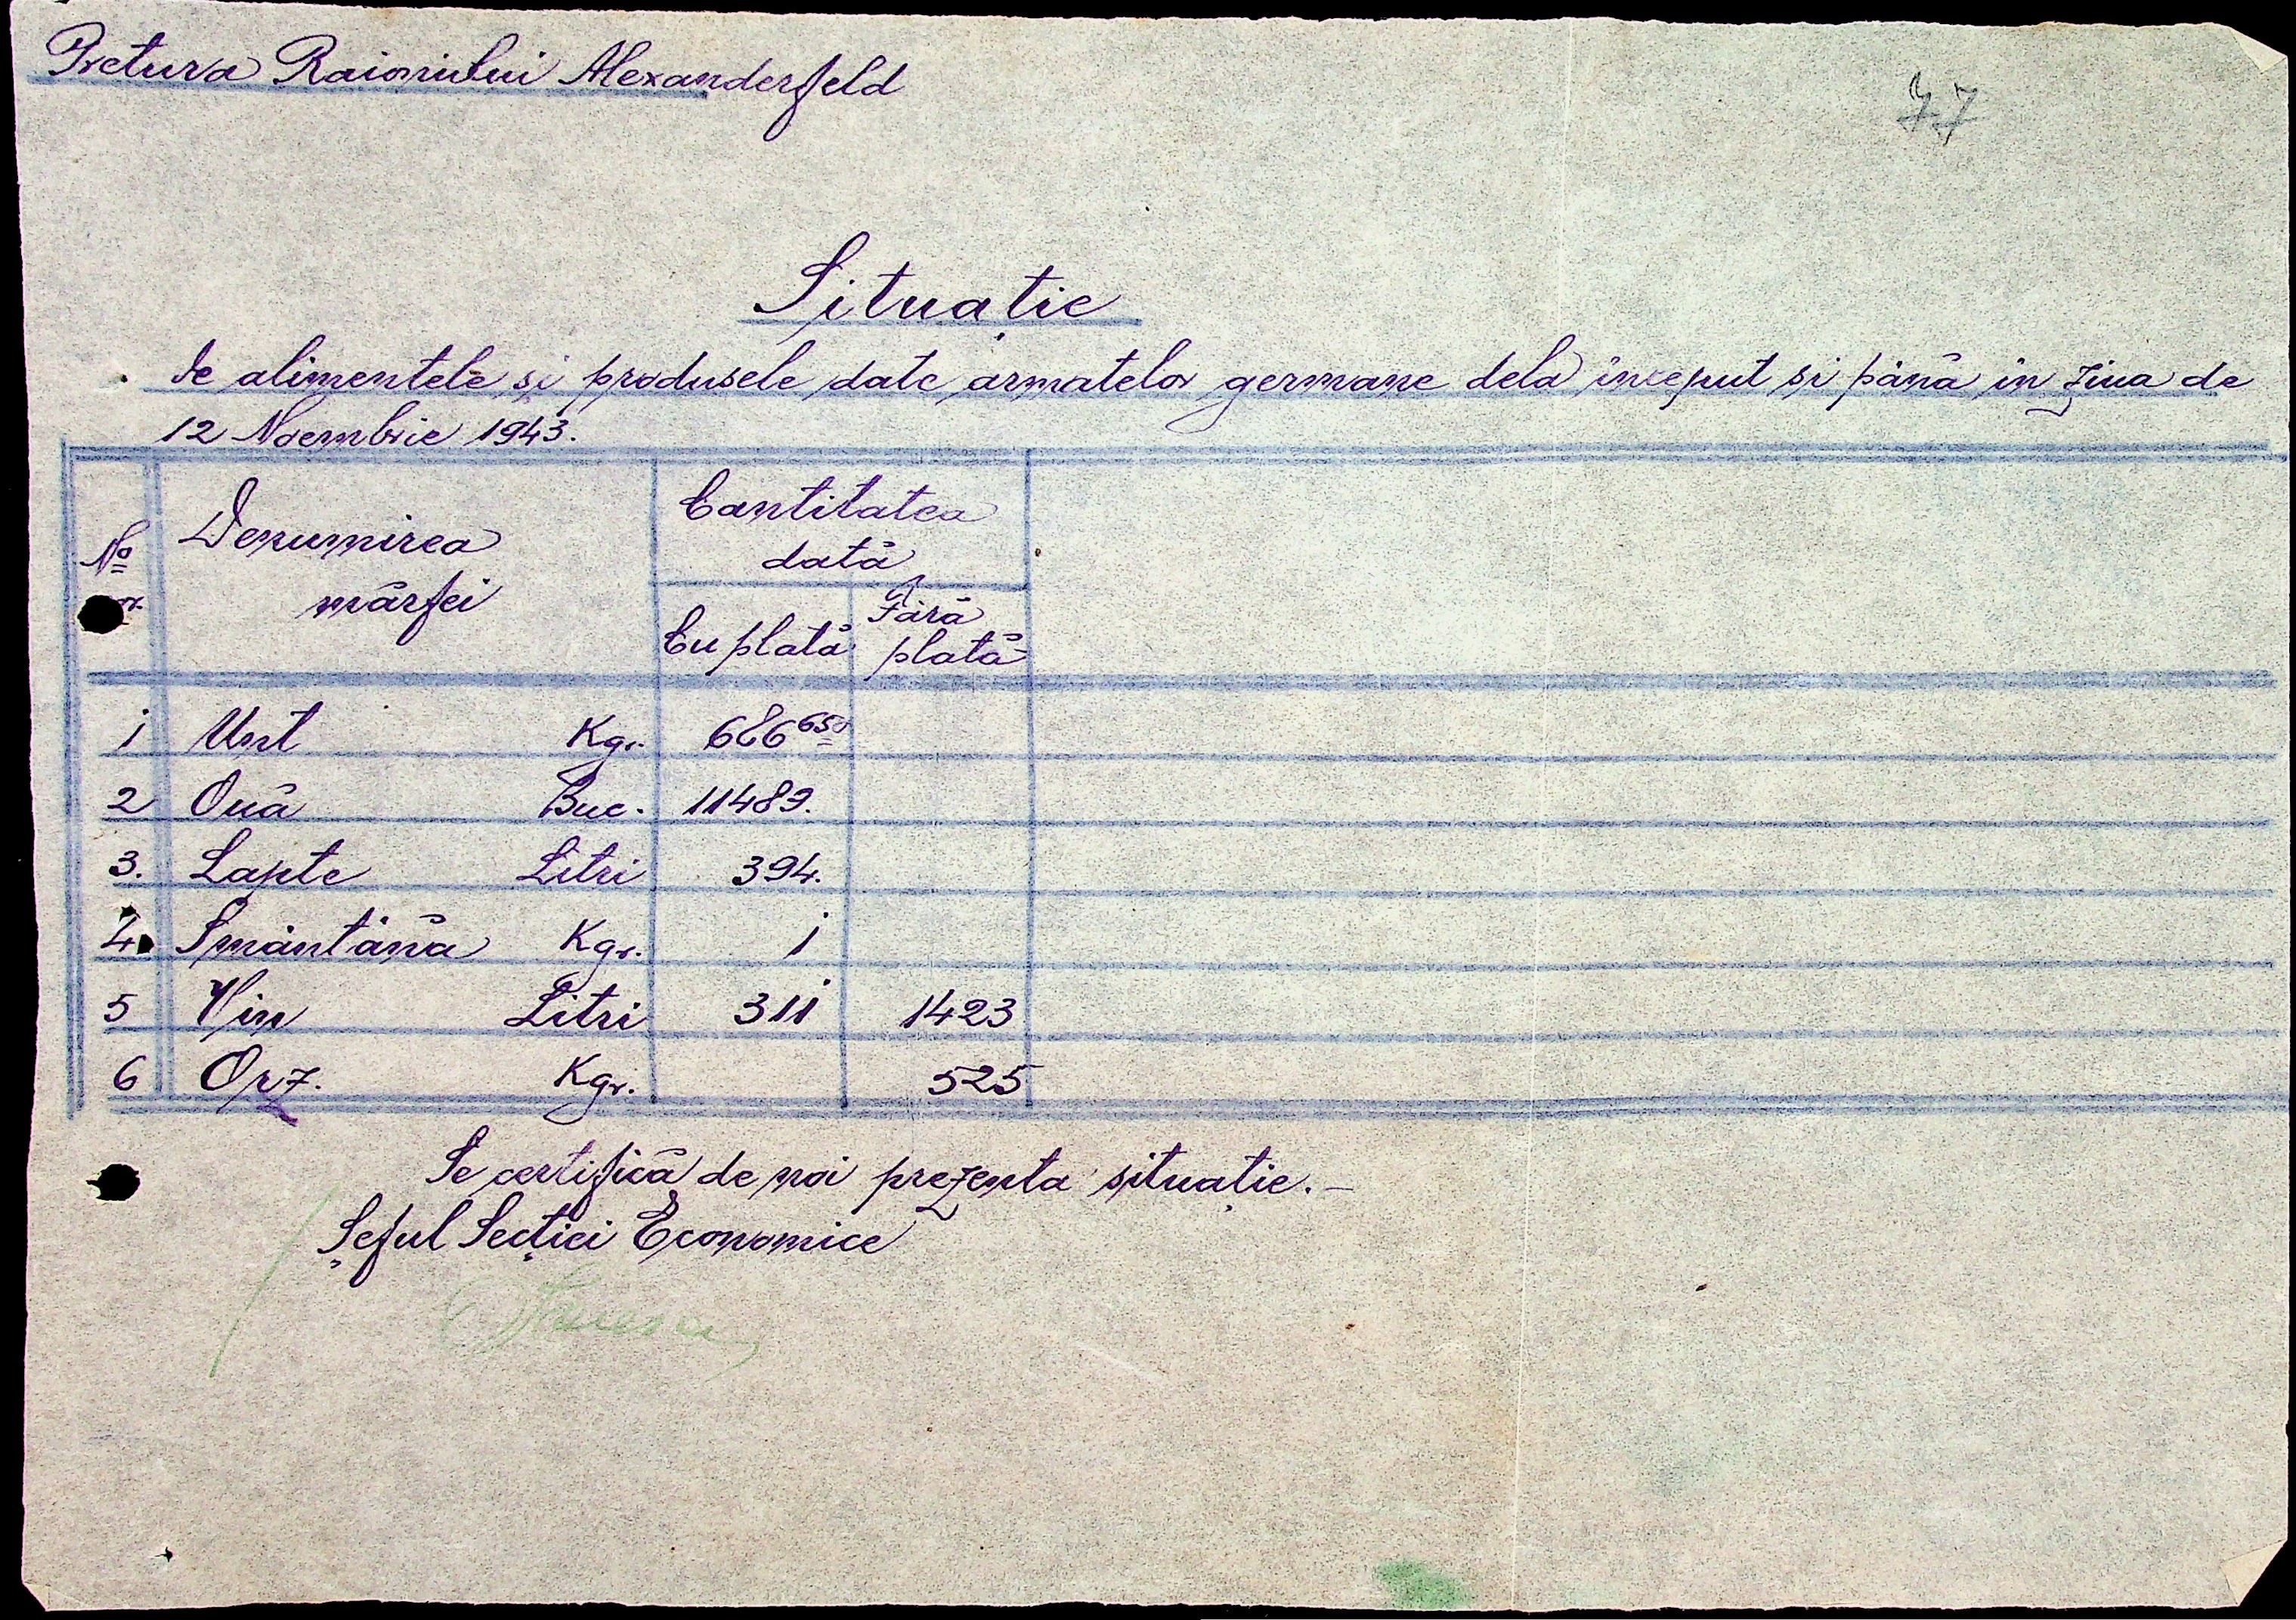 Pretura Raionului Alexanderfeld
77
Situație
de alimentele și produsele date armatelor germane dela început si până in ziua de
12 Noembrie 1943.
No
Denumirea mărfei
Cantitatea dată
Cu plată
Fără plată
1 Unt Kgr. 686 650
2 Ouă Buc. 11489.
3. Lapte Litri 394.
4. Smântână Kgr. 1
5 Vin Litri 311 1423
6 Orz. Kgr. 525
Se certifică de noi prezenta situație. –
Șeful Secției Economice